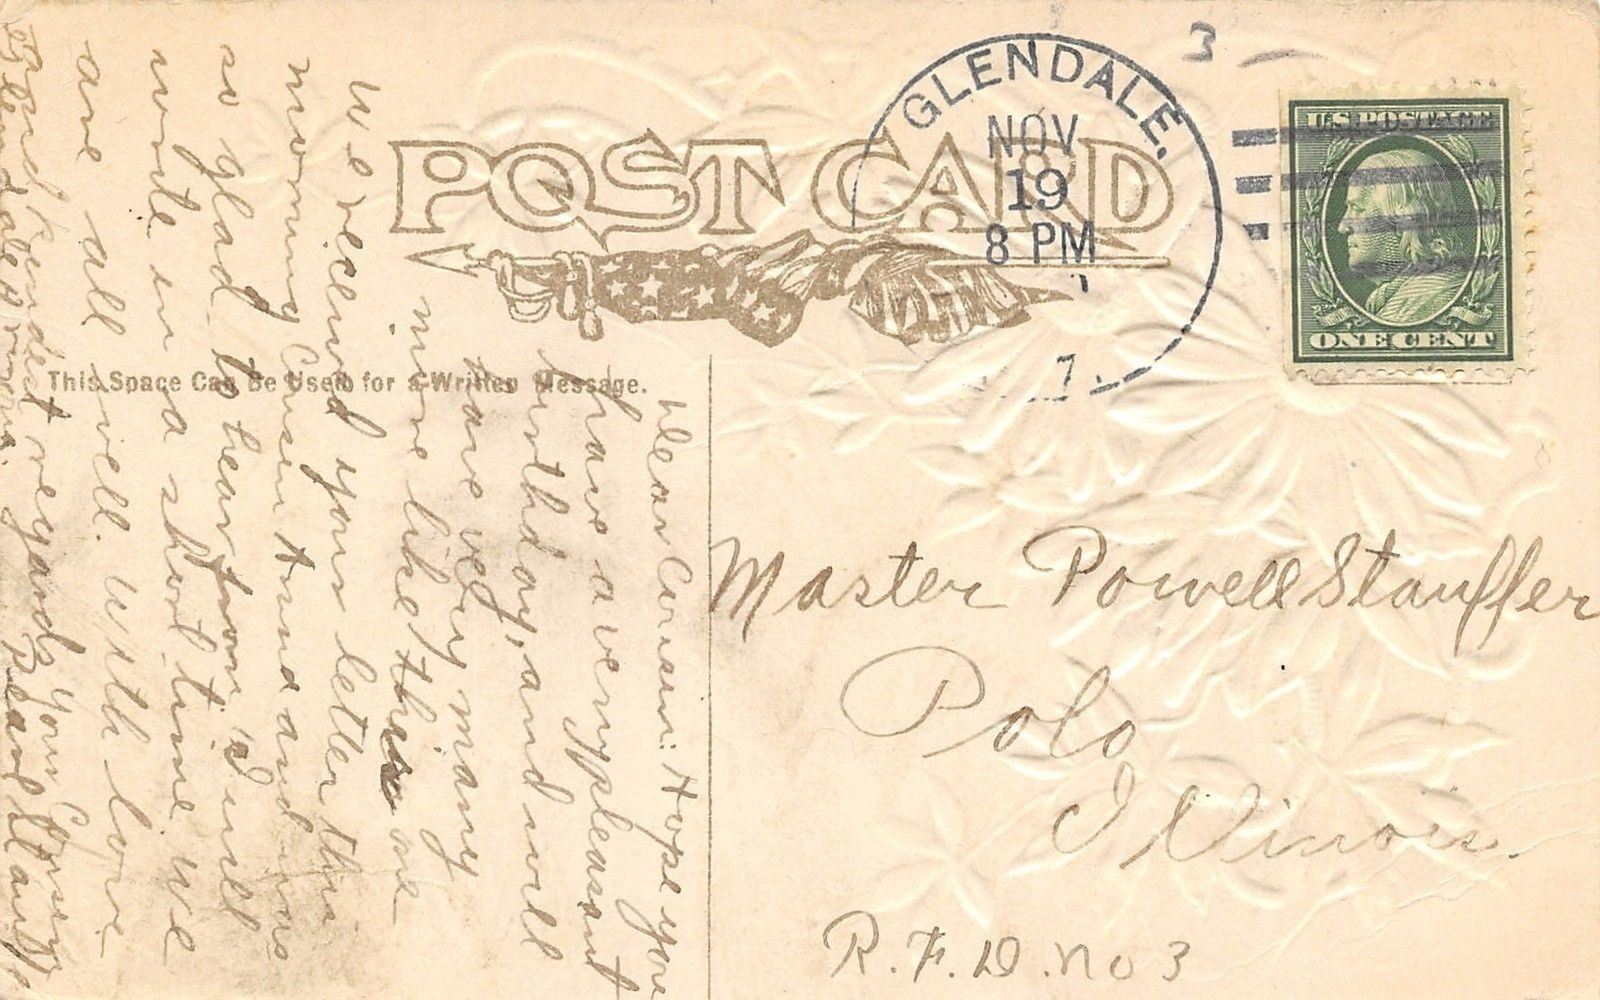 POST CARD
GLENDALE.
NOV
19
8 PM
3
U.S. POSTAGE
ONE CENT
This Space Can Be Used for a Written Message.
Dear Cousin: Hope you
have a very pleasant
birthday, and will
have very many
more like this one
We recieved your letter this
morning Cousin Anna and was
so glad to hear from I will
write in a short time We
are all well. With love
and kindest regards Your Cousin
Glendale Arizona. Pearl Stauffer
Master Powell Stauffer
Polo
Illinois.
R.F.D. no 3